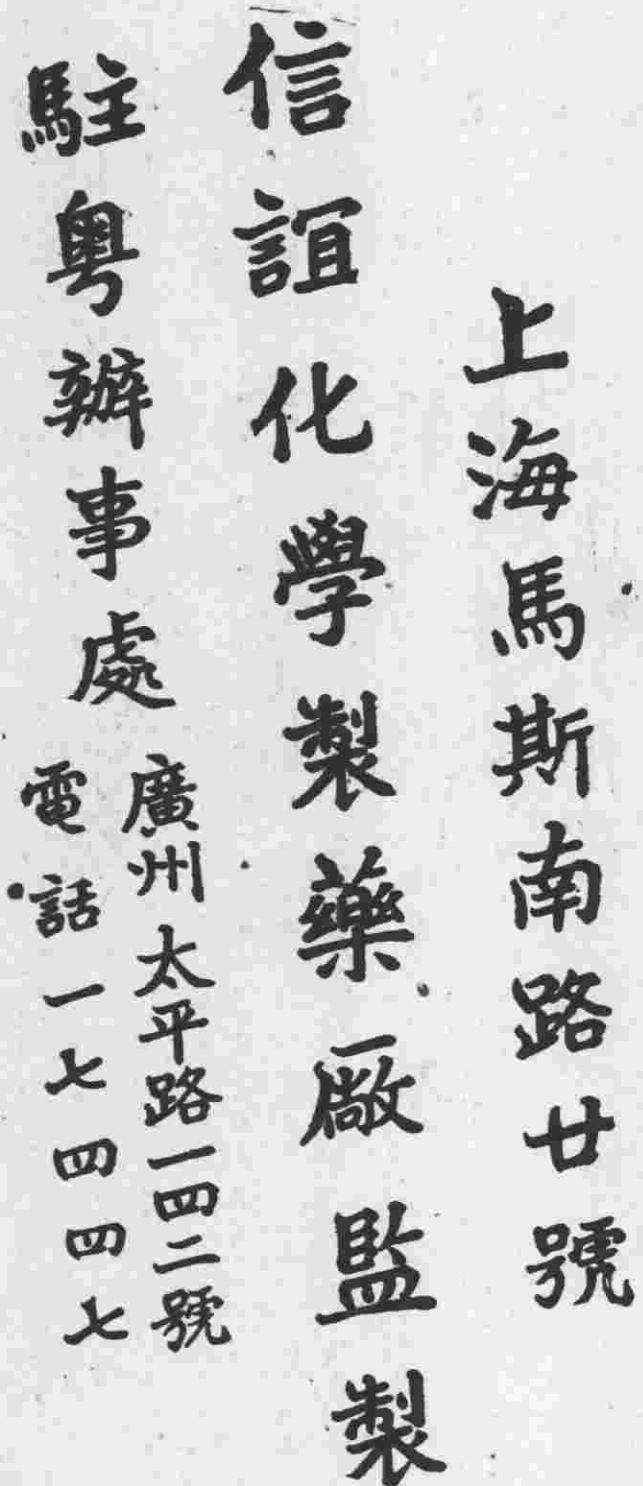 上海馬斯南路廿號
信誼化學製藥廠監製
駐粵辦事處
廣州太平路一四二號
電話一七四四七